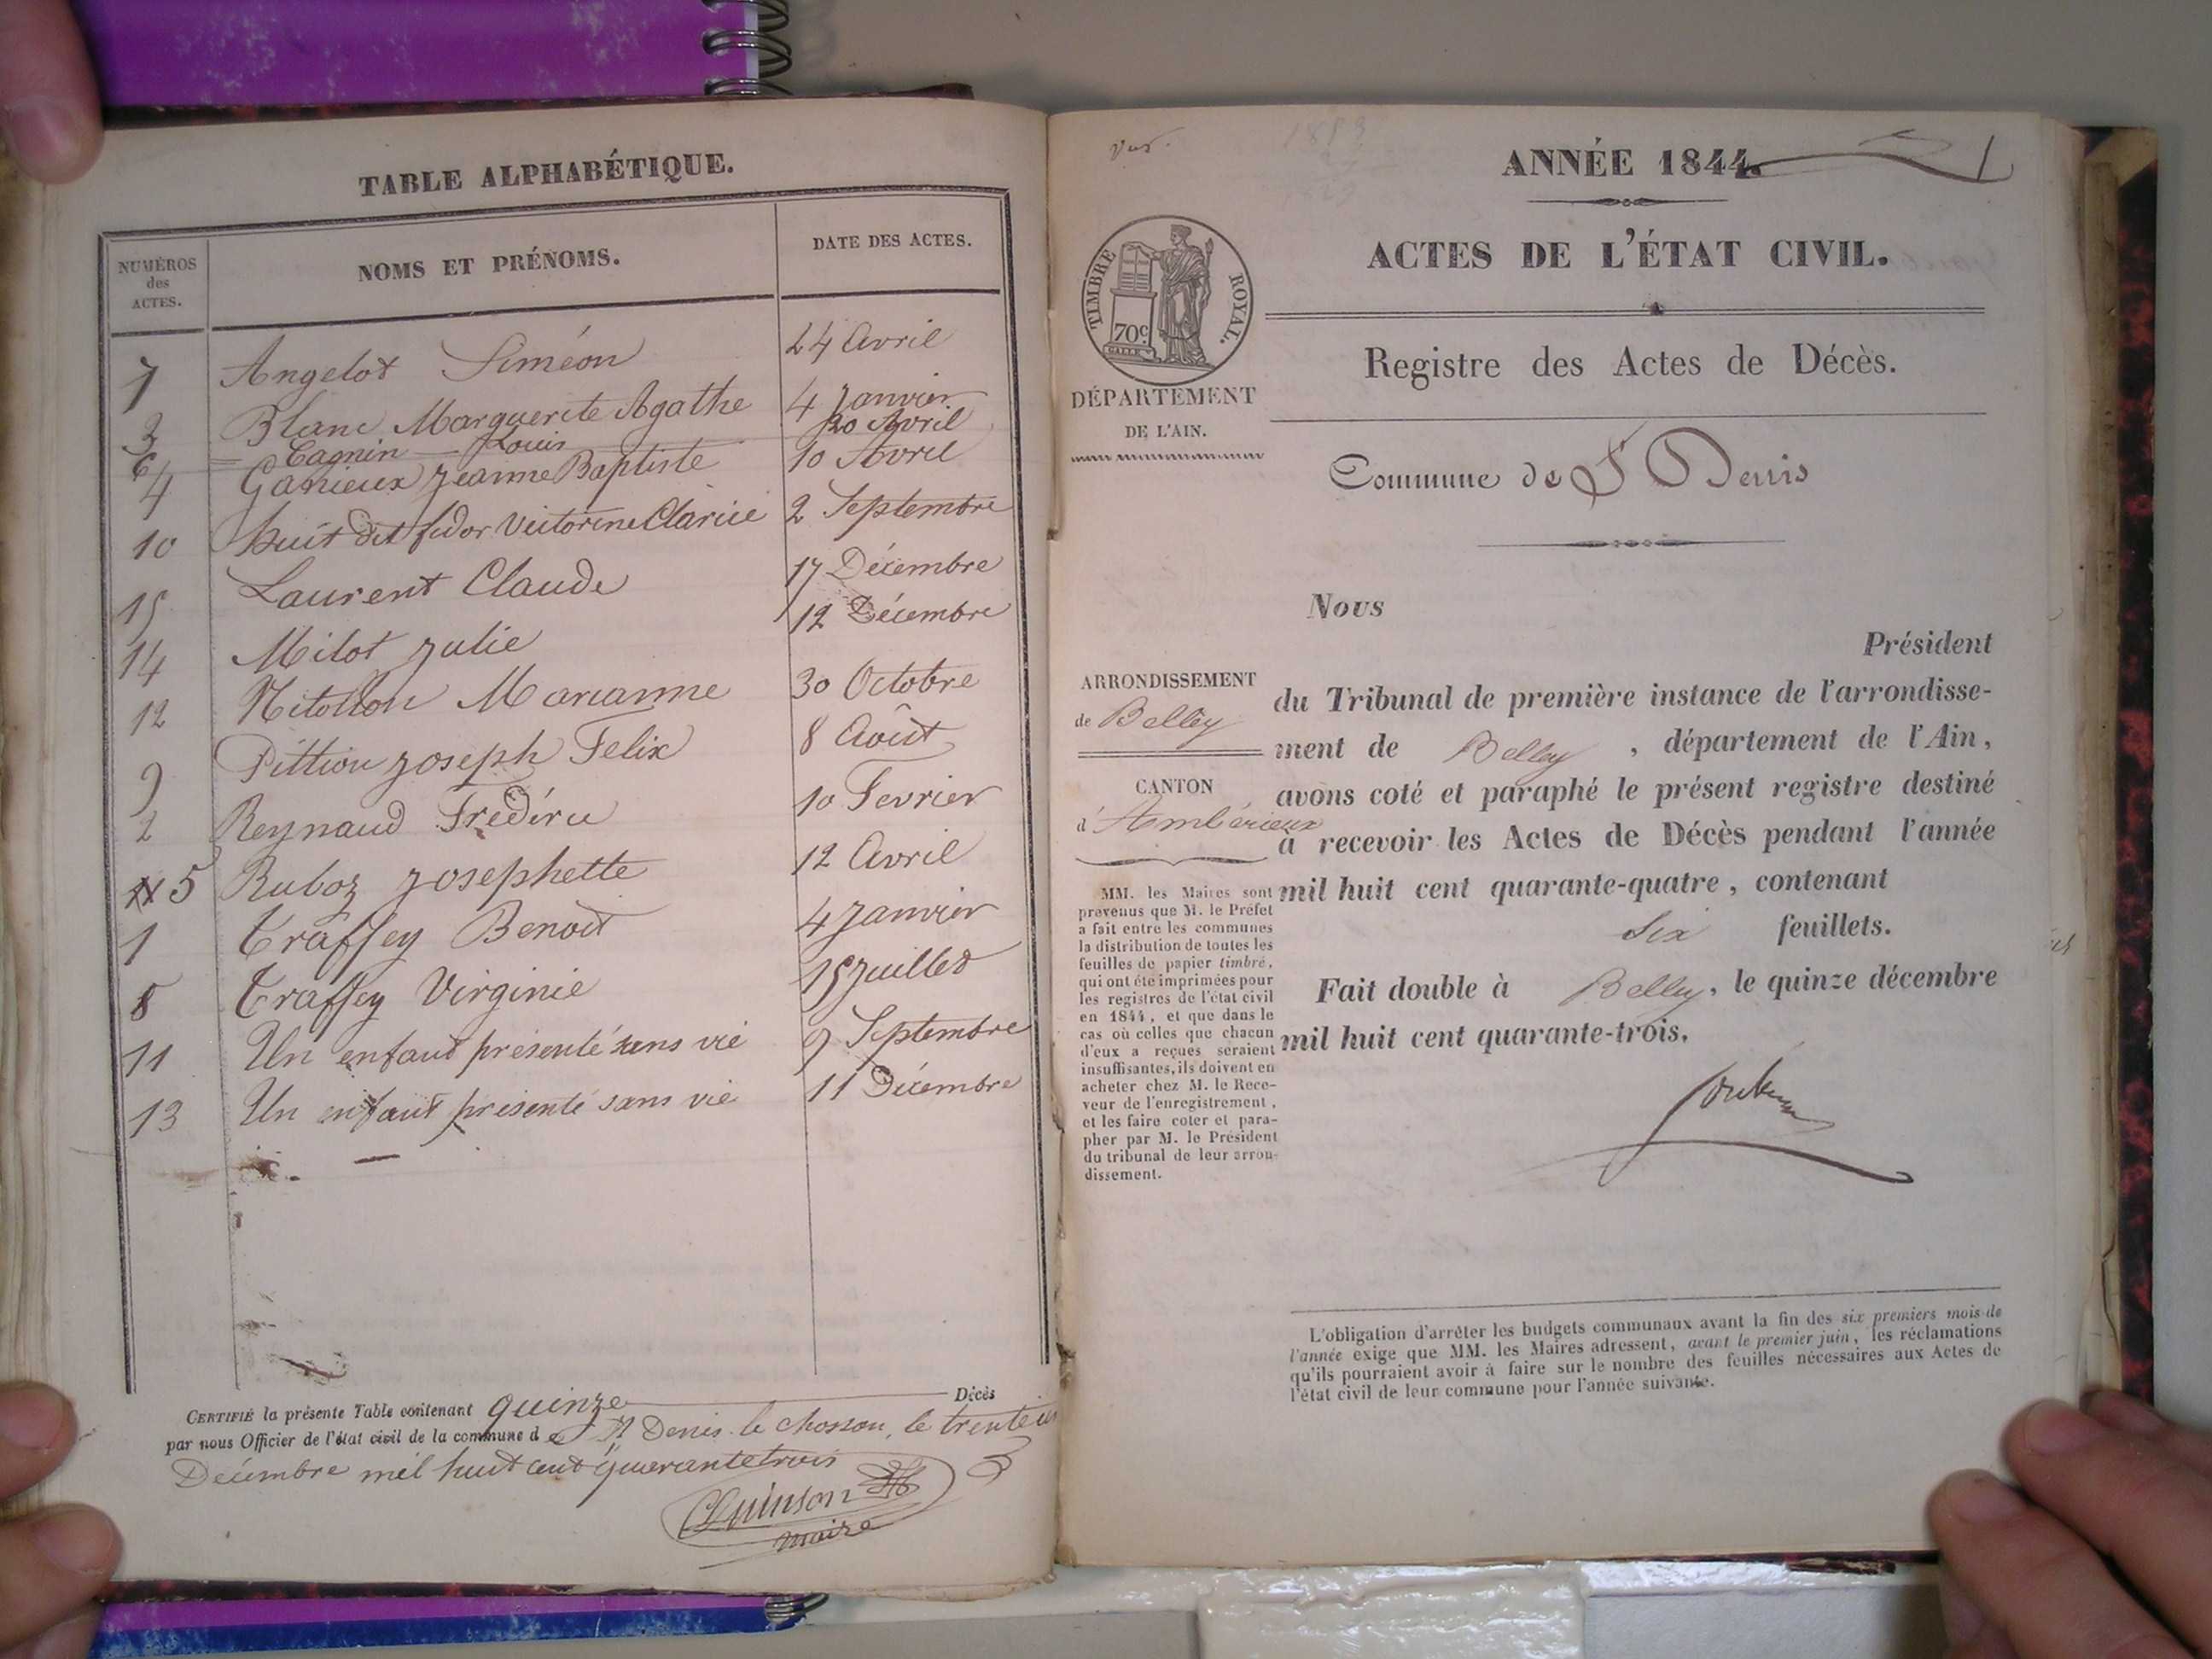 TABLE ALPHABÉTIQUE.
NUMÉROS
des
ACTES.
NOMS ET PRÉNOMS.
DATE DES ACTES.
7 Angelot Siméon 24 Avril
3 Blanc Marguerite Agathe 4 Janvier
6 Cagnin Louis 20 Avril
4 Garieux Jeanne Baptiste 10 Avril
10 huit dit fidor Victorine Clarice 2 Septembre
15 Laurent Claude 17 Décembre
14 Milot Julie 12 Décembre
12 Marianne 30 Octobre
9 Pittion Joseph Felix 8 Août
2 Reynaud Fredéric 10 Fevrier
5 Ruboz Josephette 12 Avril
1 Traffey Benoit 4 Janvier
8 Traffey Virginie 15 Juillet
11 Un enfant présenté sans vie 9 Septembre
13 Un enfant présenté sans vie 11 Décembre
CERTIFIÉ la présente Table contenant quinze Décès
par nous Officier de l'état civil de la commune de St Denis le chosson, le trente un
Décembre mil huit cent quarante trois
Quinson
maire
ANNÉE 1844.
1
ACTES DE L'ÉTAT CIVIL.
TIMBRE ROYAL.
70c
GALLE
DÉPARTEMENT
DE L'AIN.
Registre des Actes de Décès.
Commune de St Denis
ARRONDISSEMENT
de Belley
CANTON
d'Ambérieux
MM. les Maires sont
prévenus que M. le Préfet
a fait entre les communes
la distribution de toutes les
feuilles de papier timbré,
qui ont été imprimées pour
les registres de l'état civil
en 1844, et que dans le
cas où celles que chacun
d'eux a reçues seraient
insuffisantes, ils doivent en
acheter chez M. le Rece-
veur de l'enregistrement,
et les faire coter et para-
pher par M. le Président
du tribunal de leur arron-
dissement.
Nous
Président
du Tribunal de première instance de l'arrondisse-
ment de Belley, département de l'Ain,
avons coté et paraphé le présent registre destiné
à recevoir les Actes de Décès pendant l'année
mil huit cent quarante-quatre, contenant
six feuillets.
Fait double à Belley, le quinze décembre
mil huit cent quarante-trois.
L'obligation d'arrêter les budgets communaux avant la fin des six premiers mois de
l'année exige que MM. les Maires adressent, avant le premier juin, les réclamations
qu'ils pourraient avoir à faire sur le nombre des feuilles nécessaires aux Actes de
l'état civil de leur commune pour l'année suivante.